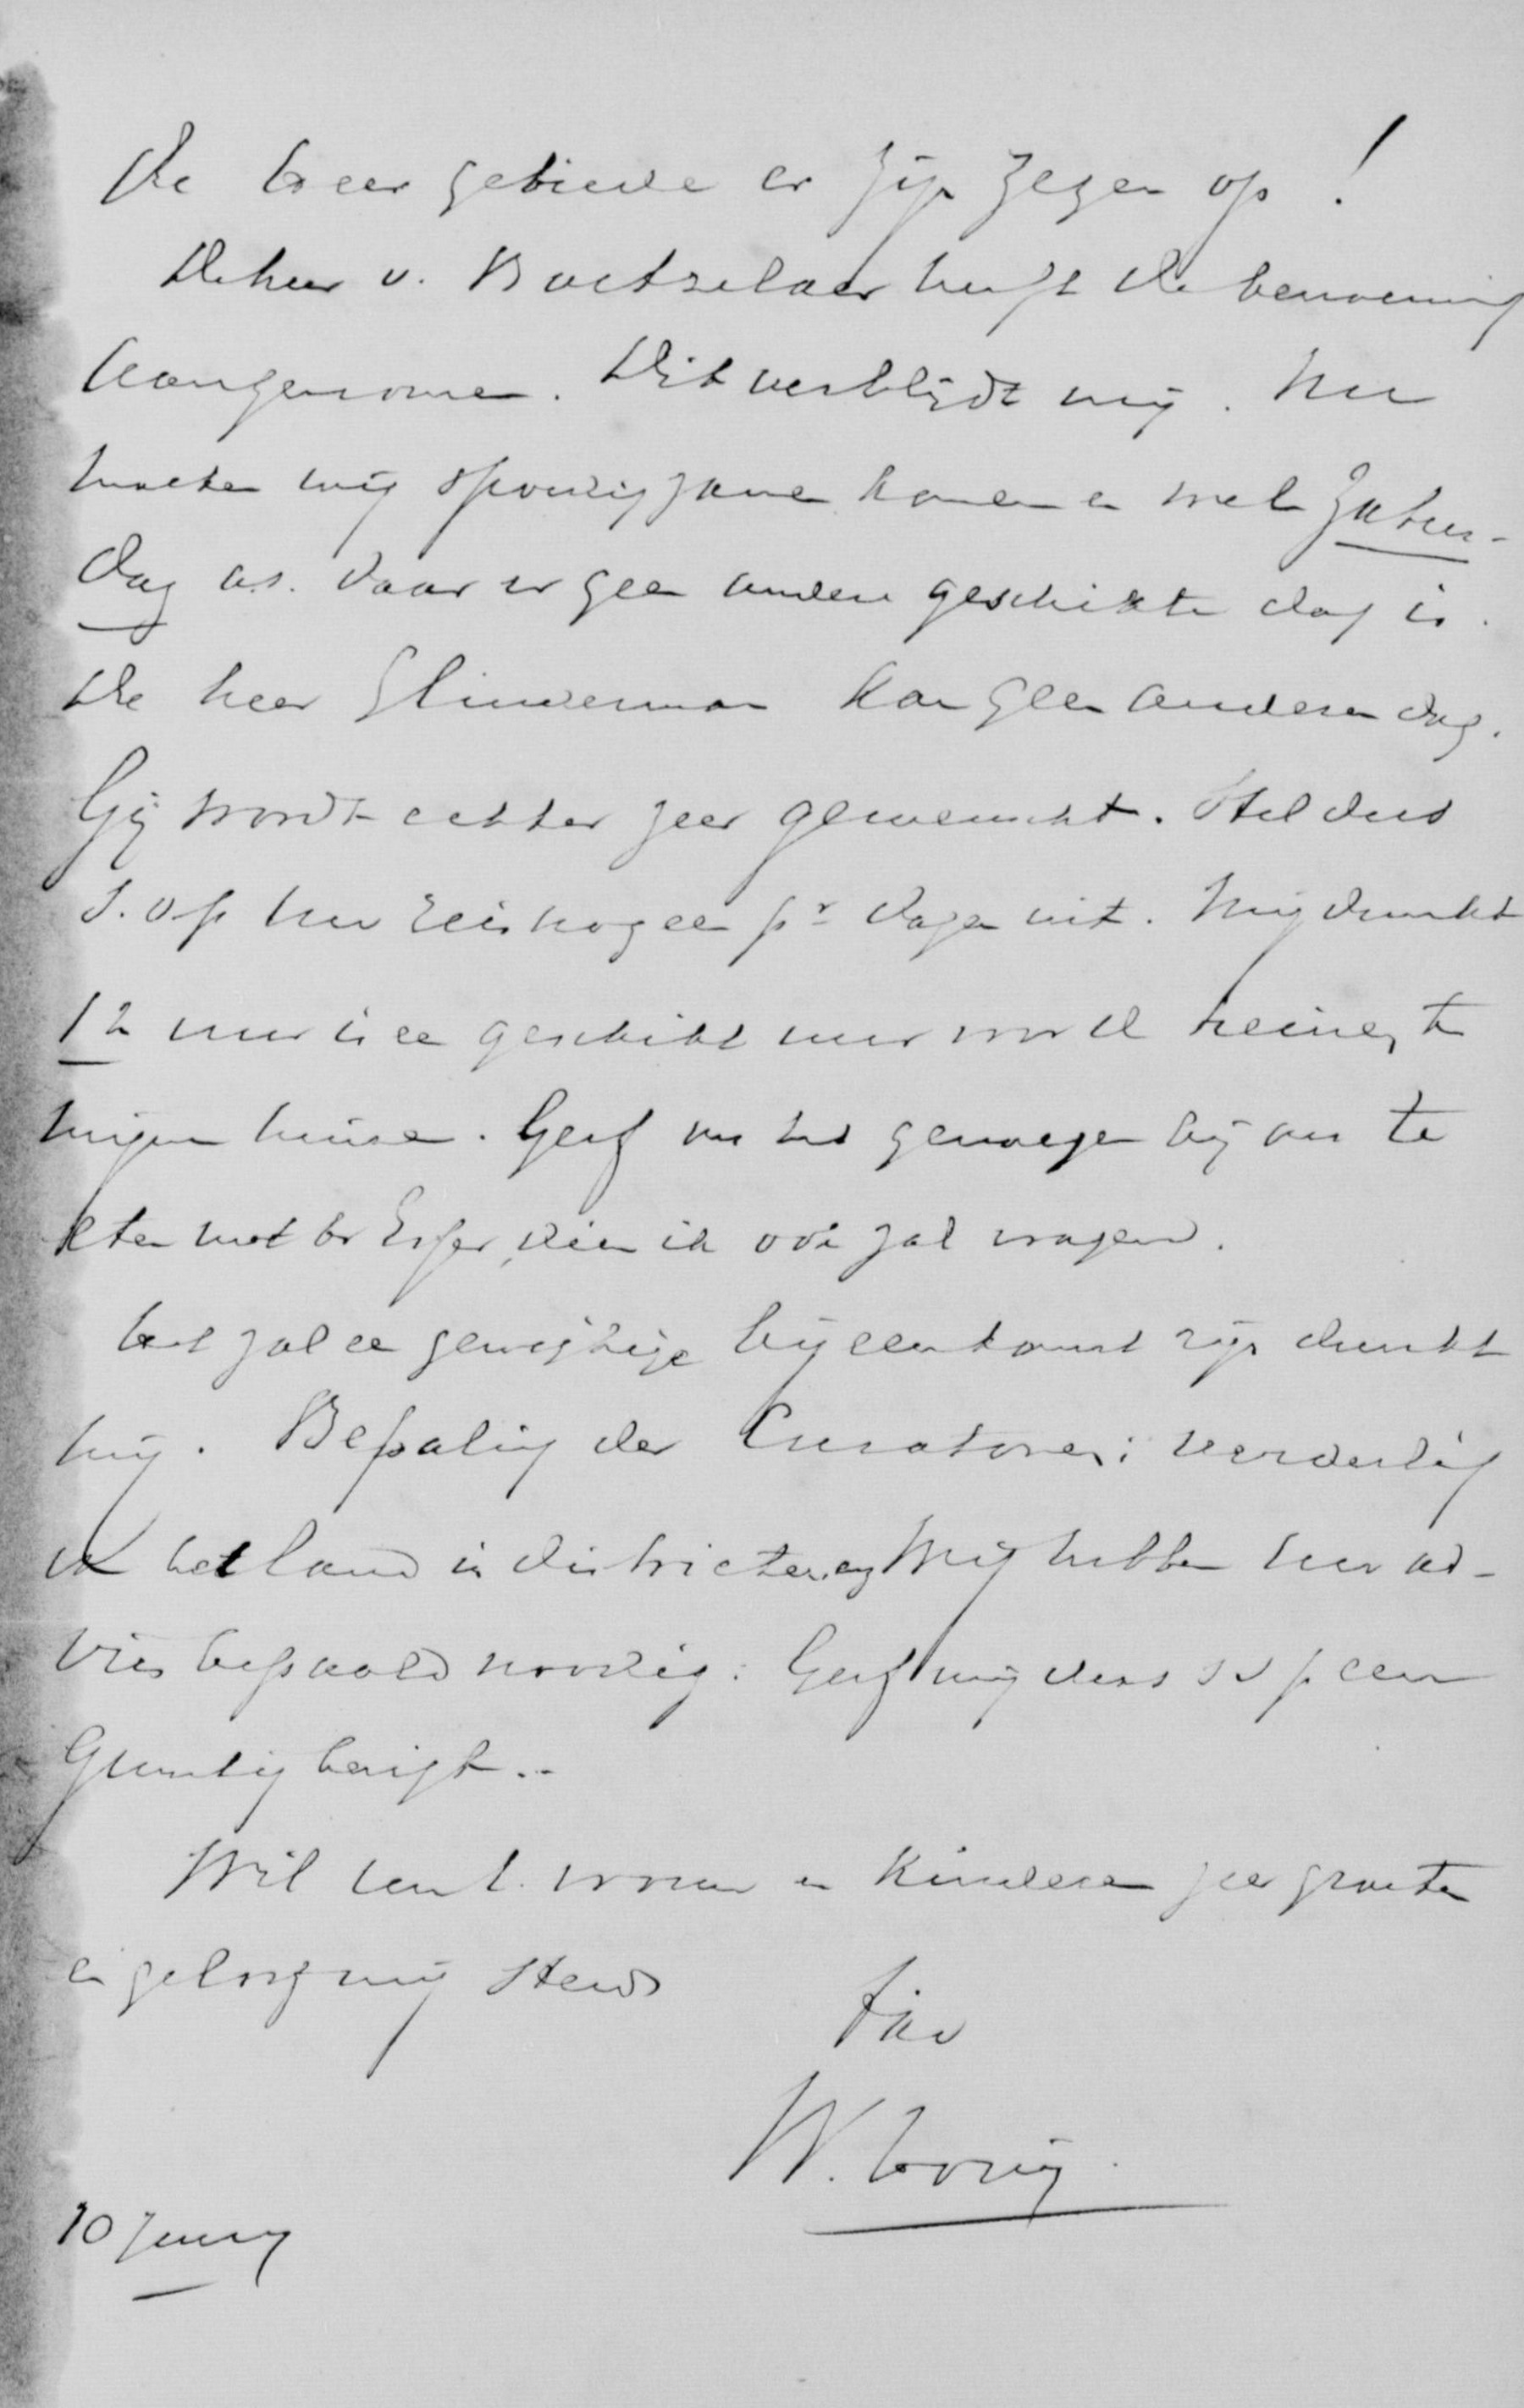 De Heer gebiede er zijn zegen op!
De heer v. Boetzelaer heeft de benoeming
aangenomen. Dit verblijdt mij. Nu
moeten wij spoedig zamenkomen en wel Zatur-
dag a.s. daar er geen andere geschikte dag is.
De heer kan geen anderen dag.
Gij wordt echter zeer gewenscht. Stel dus
s.v.p. uw reis nog een pr dagen uit. Mij dunkt
12 uur is een geschikt uur voor de reizigers, te
mijnen huize. Geef me het genoegen bij ons te
eten met br dien ik ook zal vragen.
Het zal een gewigtige bijeenkomst zijn dunkt
mij. Bepaling der Curatoren; verdeeling
van het land in districten, enz Wij hebben uw ad-
vies bepaald noodig. Geef mij dus svp een
gunstig berigt..
Wil uw l. vrouw en kinderen zeer groeten
en geloof mij steeds
t.a.v
W. Hovy.
10 Juny